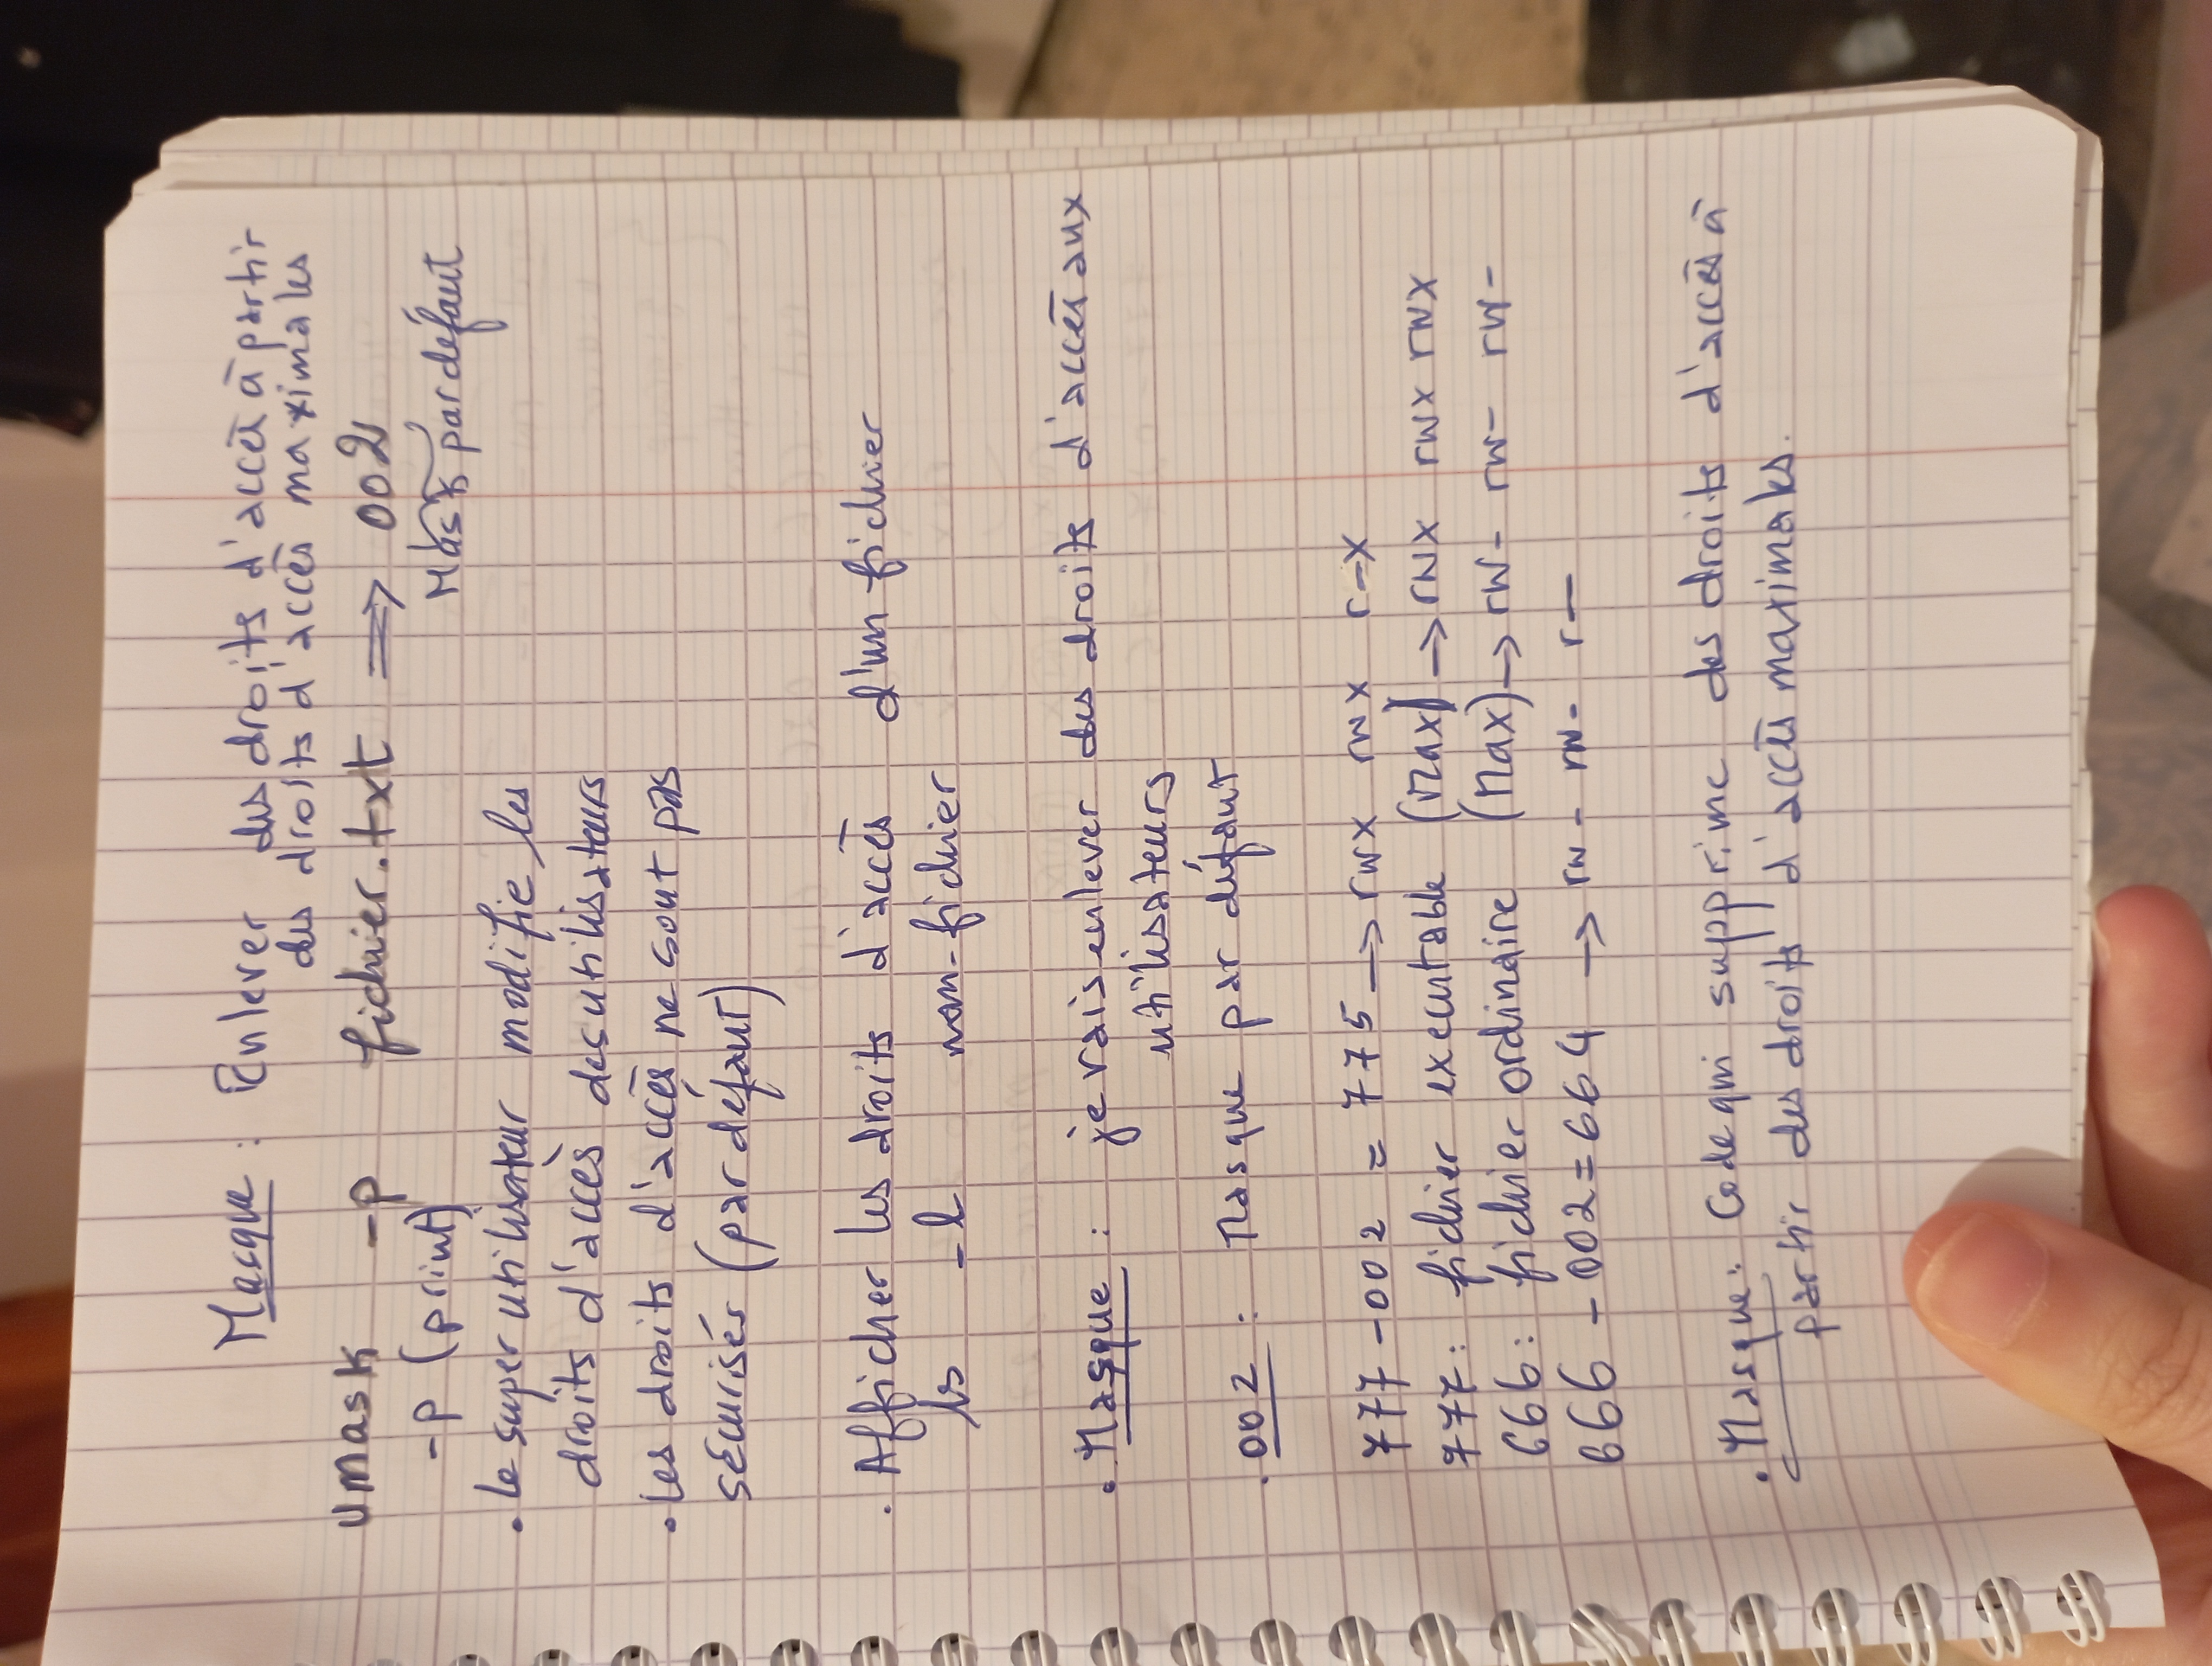 Masque : Enlever des droits d'accès à partir
des droits d'accès maximales
umask -p fichier.txt => 002
-p (print) Mask par défaut
. le super utilisateur modifie les
droits d'accès des utilisateurs
. les droits d'accès ne sont pas
sécurisés (par défaut)
. Afficher les droits d'accès d'un fichier
ls -l nom-fichier
. Masque : je vais enlever des droits d'accès aux
utilisateurs
. 002 : Masque par défaut
777 - 002 = 775 -> rwx rwx r-x
777 : fichier executable (Max) -> rwx rwx rwx
666 : fichier ordinaire (Max) -> rw- rw- rw-
666 - 002 = 664 -> rw- rw- r--
. Masque : Code qui supprime des droits d'accès à
partir des droits d'accès maximales.